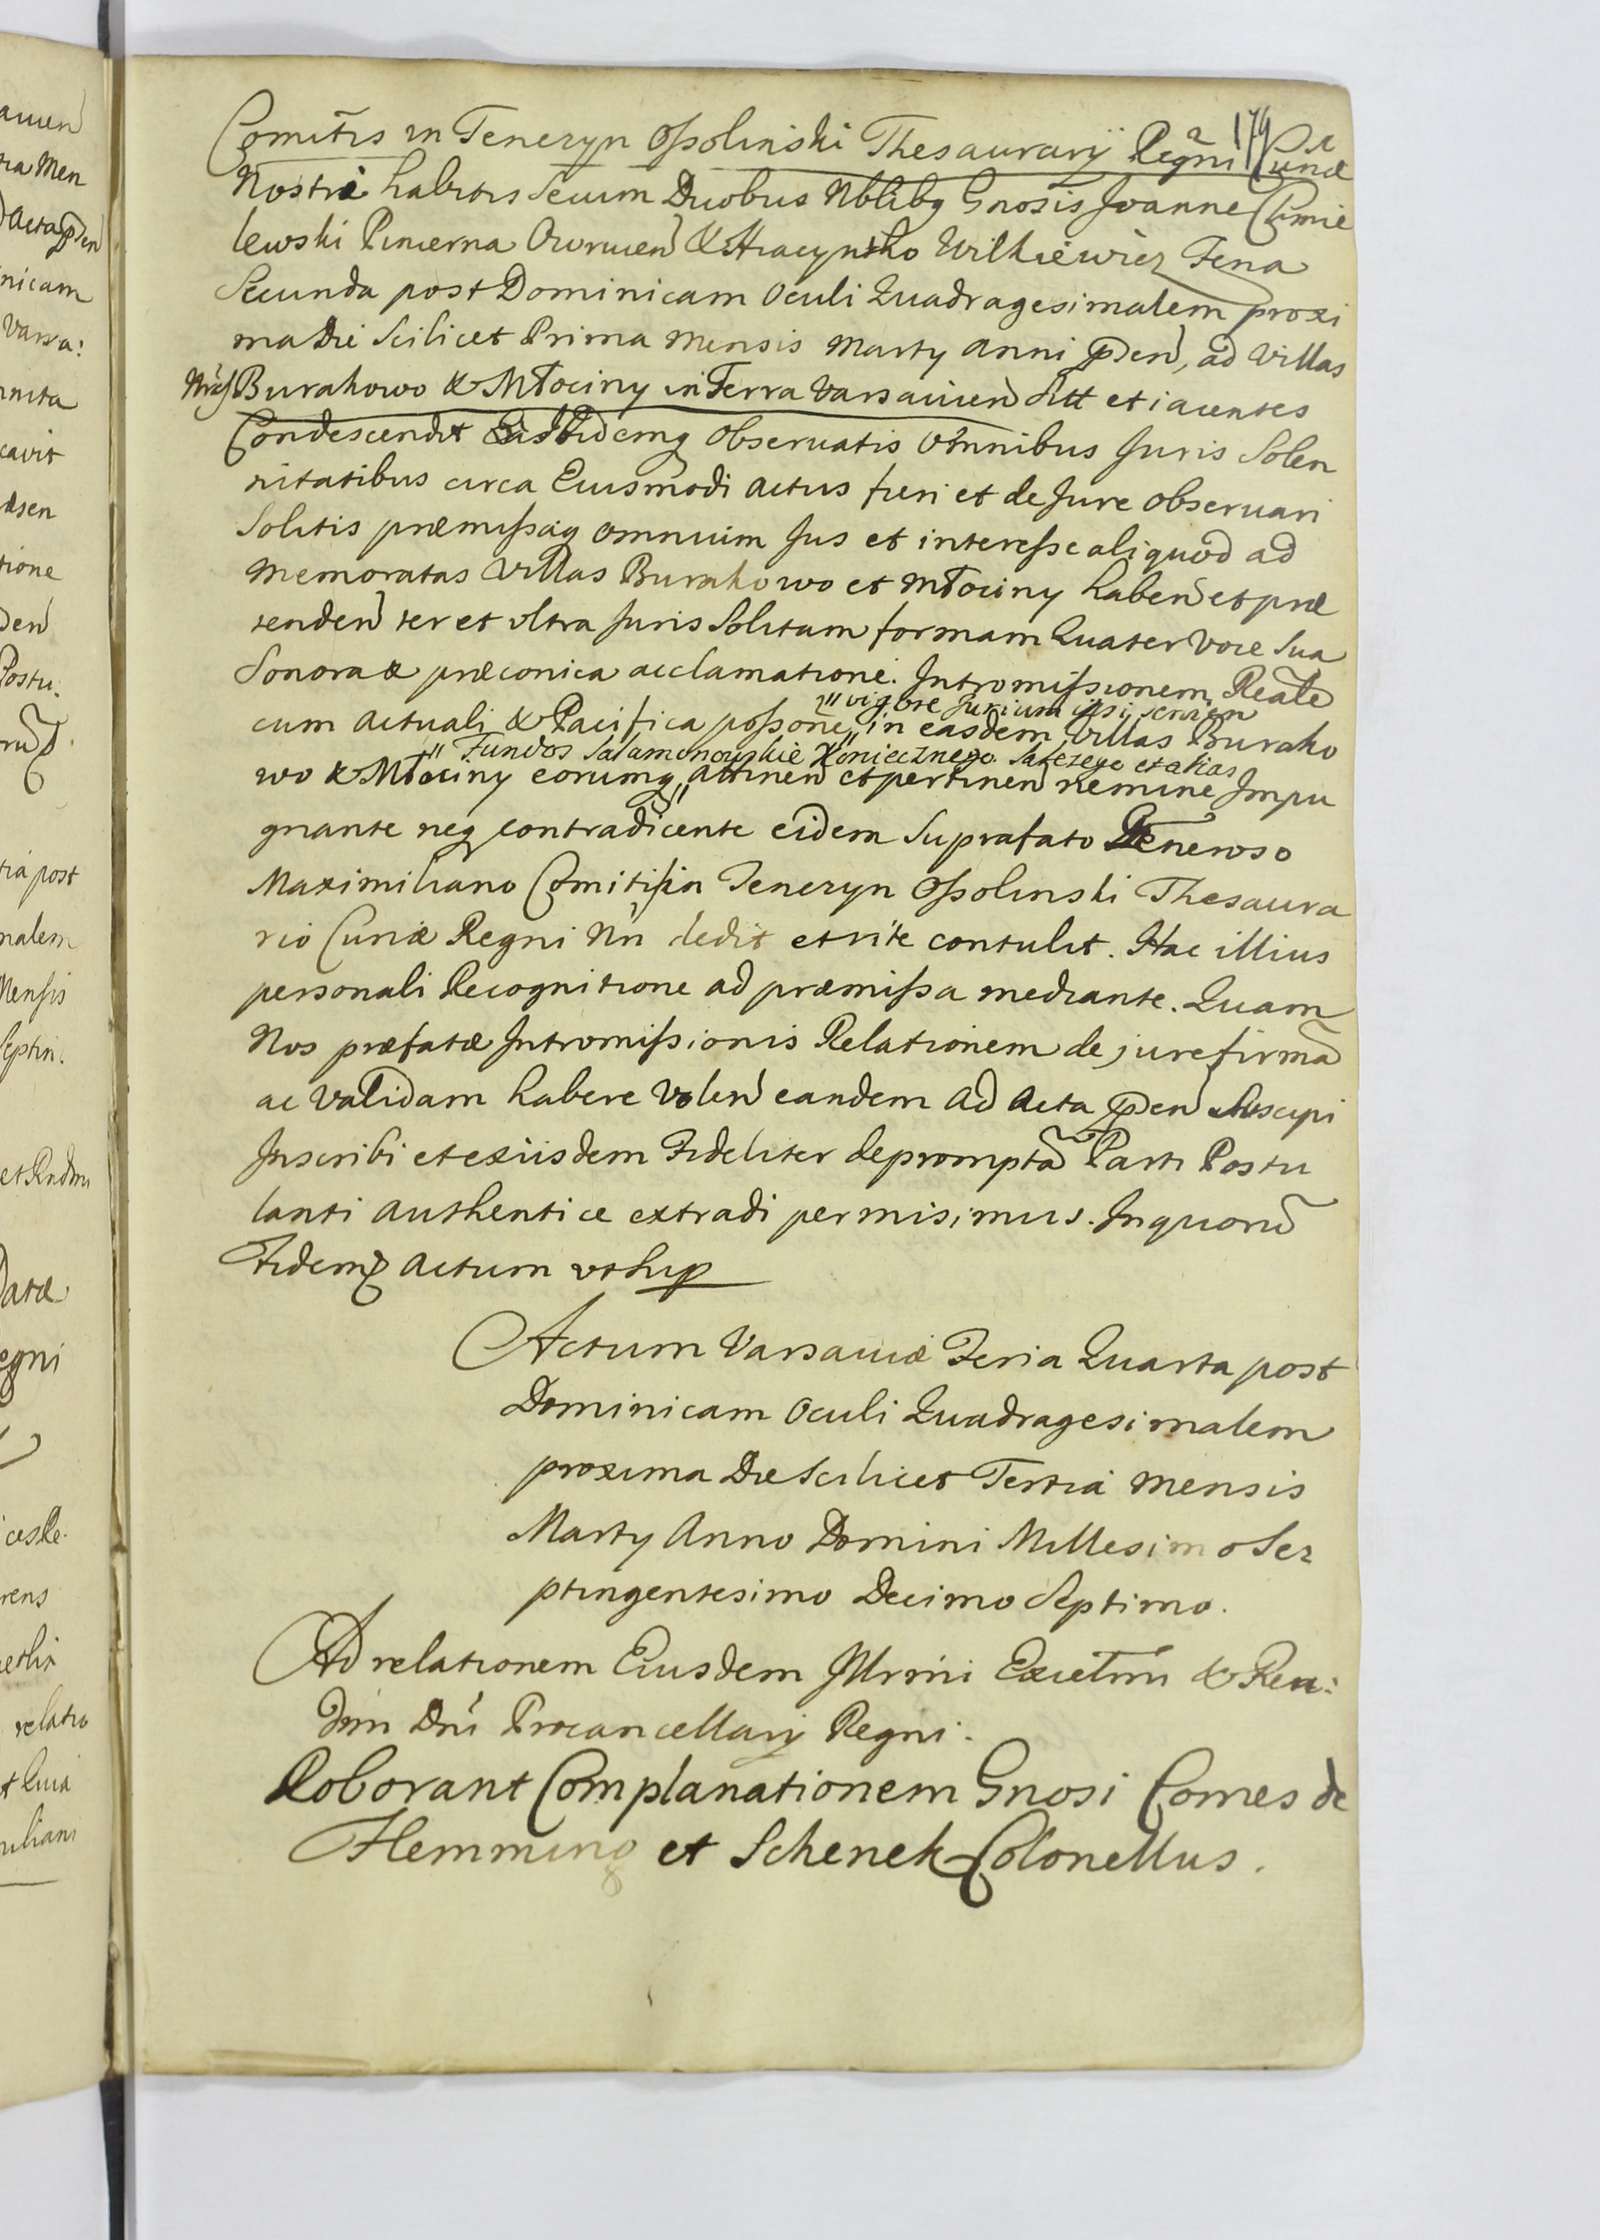 179
Comitis in Tenczyn Ossolinski Thesaurarij Regni Curiæ
Nostræ habitis secum Duobus Nblibq Gnosis Joanne Chmie
lewski Pincerna Owrucen & Hiacyntho Wilkiewicz Feria
Secunda post Dominicam Oculi Quadragesimalem proxi
ma Die Scilicet Prima Mensis Marty Anni pden, ad Villas
Burakowo & Młociny in Terra Varsavien sitt et iacentes
Condescendit Ibidemq observatis omnibus Juris Solen
nitatibus circa Eiusmodi actus fieri et de Jure observari
Solitis præmissaq omnium Jus et interesse aliquod ad
memoratas Villas Burakowo et Młociny haben et præ
tenden ter et ultra Juris Solitam formam Quater voce sua
Sonora & præconica acclamatione. Intromissionem Realē
cum actuali & Pacifica possone "vigore Jurium ipsi servien" in easdem Villas Burako
wo & Młociny eorumq "Fundos Salamonowskie Koniecznego Saterego et alias" attinen et pertinen nemine Impu
gnante neq contradicente eidem Suprafato Generoso
Maximiliano Comiti in Tenczyn Ossolinski Thesaura
rio Curiæ Regni Nri dedit et rite contulit. Hac illius
personali Recognitione ad præmissa mediante. Quam
Nos præfatæ Intromissionis Relationem de jure firmā
ac validam habere volen eandem ad Acta pden suscipi
Inscribi et exiisdem Fideliter depromptā Parti Postu
lanti authentice extradi permisimus. In quorū
Fidem Actum ut sup
Actum Varsaviæ Feria Quarta post
Dominicam Oculi Quadragesimalem
proxima Die Scilicet Tertia Mensis
Marty Anno Domini Millesimo Se
ptingentesimo Decimo Septimo.
Ad relationem Eiusdem Illrmi Excelmi & Reu:
dmi Dni Procancellarij Regni.
Roborant Complanationem Gnosi Comes de
Flemming et Schenek Colonellus.